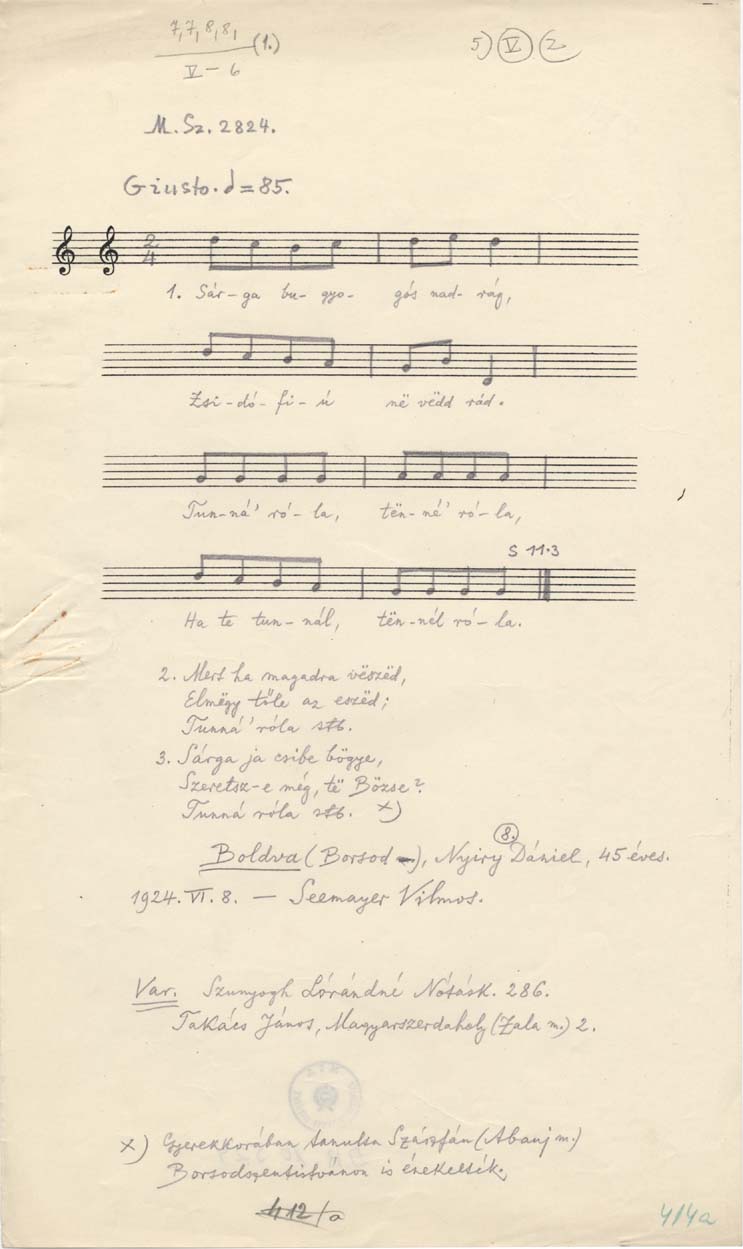 7, 7, 8, 8, (1.)
V – 6
5) V 2
M. Sz. 2824.
Giusto. ♩=85.
2
4
1. Sár-ga bu-gyo-gós nad-rág,
Zsi-dó-fi-ú në vëdd rád.
Tun-ná' ró-la, tën-né' ró-la,
S 11.3
Ha te tun-nál, tën-nél ró-la.
2. Mert ha magadra vëszëd,
Elmëgy tőle az eszëd;
Tunná' róla stb.
3. Sárga ja csibe bögye,
Szeretsz-e még, të Bözse?
Tunná róla stb. x)
8.
Boldva (Borsod –), Nyiry Dániel, 45 éves.
1924. VI. 8. — Seemayer Vilmos.
Var. Szunyogh Lórándné Nótásk. 286.
Takács János, Magyarszerdahely (Zala m.) 2.
x) Gyerekkorában tanulta Szárzfán (Abauj m.)
Borsodszentistvánon is énekelték.
412/a
414a